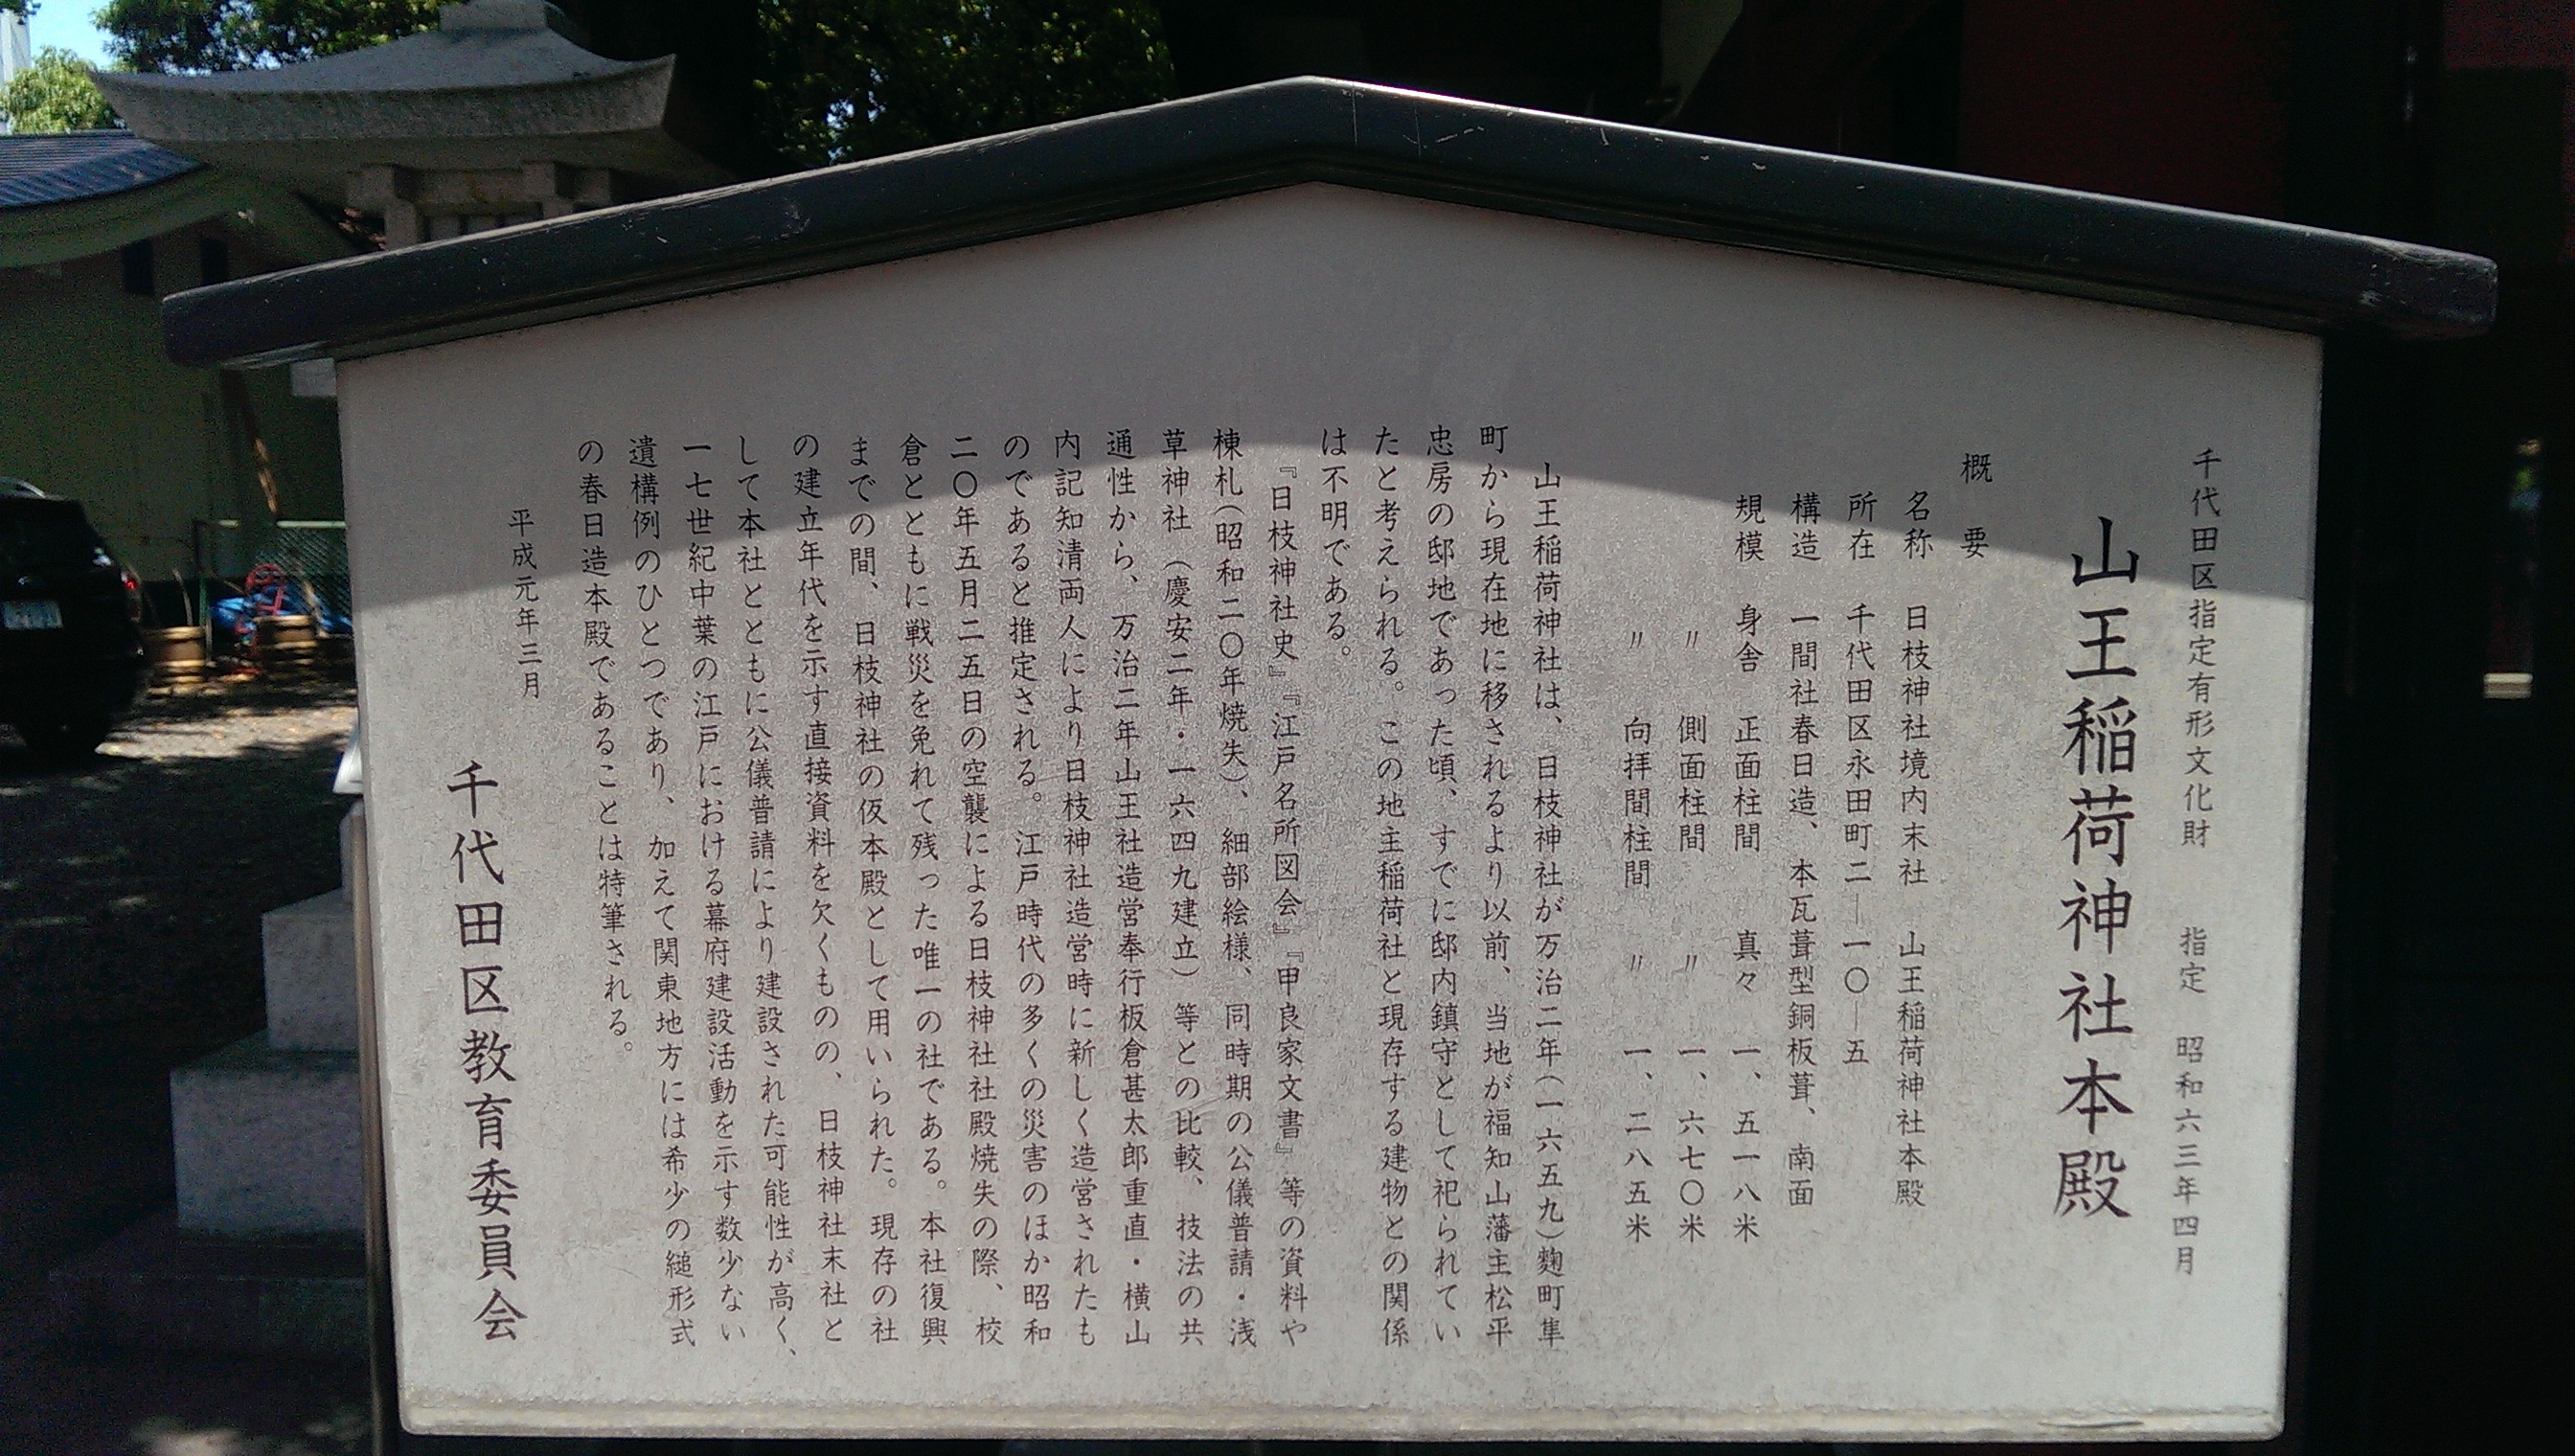 千代田区指定有形文化財　指定　昭和六三年四月
山王稲荷神社本殿
概　要
名称　日枝神社境内末社　山王稲荷神社本殿
所在　千代田区永田町二―一〇―五
構造　一間社春日造、本瓦葺型銅板葺、南面
規模　身舎　正面柱間　真々　一、五一八米
〃　側面柱間　〃　一、六七〇米
〃　向拝間柱間　〃　一、二八五米
山王稲荷神社は、日枝神社が万治二年(一六五九)麴町隼
町から現在地に移されるより以前、当地が福知山藩主松平
忠房の邸地であった頃、すでに邸内鎮守として祀られてい
たと考えられる。この地主稲荷社と現存する建物との関係
は不明である。
『日枝神社史』『江戸名所図会』『甲良家文書』等の資料や
棟札(昭和二〇年焼失)、細部絵様、同時期の公儀普請・浅
草神社(慶安二年・一六四九建立)等との比較、技法の共
通性から、万治二年山王社造営奉行板倉甚太郎重直・横山
内記知清両人により日枝神社造営時に新しく造営されたも
のであると推定される。江戸時代の多くの災害のほか昭和
二〇年五月二五日の空襲による日枝神社社殿焼失の際、校
倉とともに戦災を免れて残った唯一の社である。本社復興
までの間、日枝神社の仮本殿として用いられた。現存の社
の建立年代を示す直接資料を欠くものの、日枝神社末社と
して本社とともに公儀普請により建設された可能性が高く、
一七世紀中葉の江戸における幕府建設活動を示す数少ない
遺構例のひとつであり、加えて関東地方には希少の縋形式
の春日造本殿であることは特筆される。
平成元年三月
千代田区教育委員会